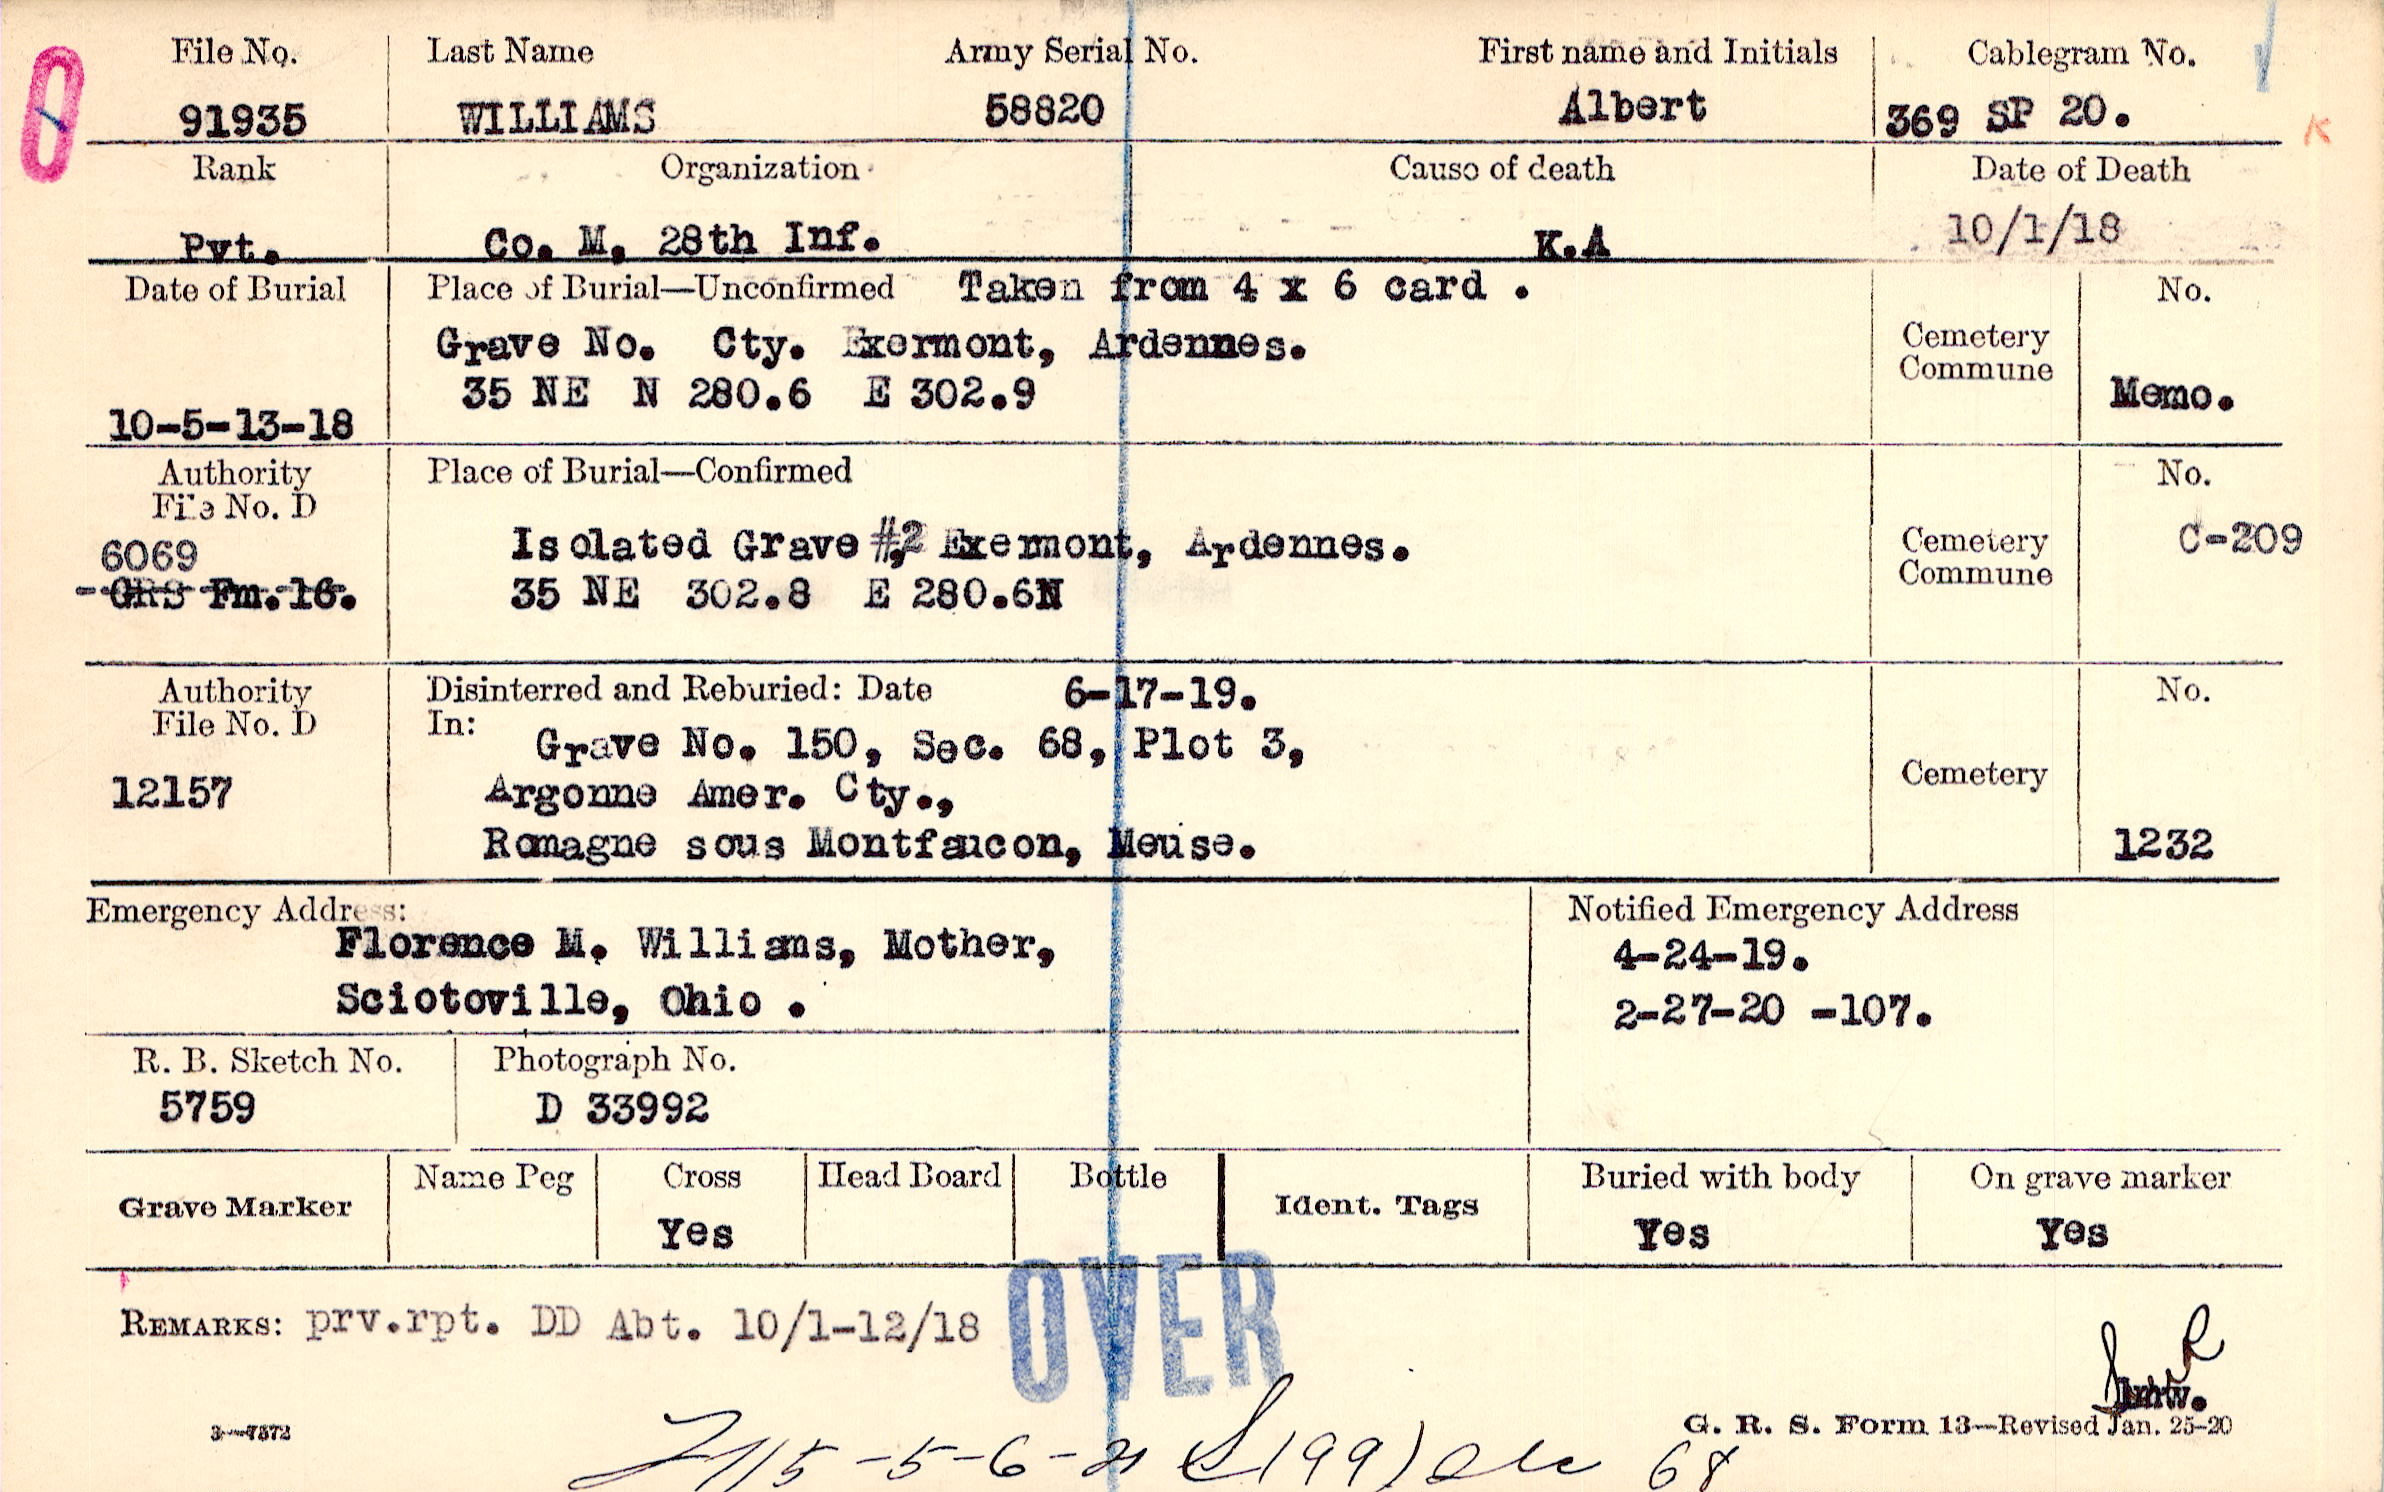 File No. Last Name Army Serial No. First name and Initials Cablegram No.
91935 WILLIAMS 58820 Albert 369 SP 20.
Rank Organization Cause of death Date of Death
Pvt. Co. M, 28th Inf. K.A 10/1/18
Date of Burial Place of Burial—Unconfirmed Taken from 4 x 6 card . No.
Grave No. Cty. Exermont, Ardennes.
35 NE N 280.6 E 302.9
Cemetery
Commune
Memo.
10-5-13-18
Authority Place of Burial—Confirmed No.
File No. D
6069
GRS Fm. 16.
Isolated Grave #2 Exermont, Ardennes.
35 NE 302.8 E 280.6N
Cemetery
Commune
C-209
Authority Disinterred and Reburied: Date 6-17-19. No.
File No. D In:
Grave No. 150, Sec. 68, Plot 3,
12157 Argonne Amer. Cty.,
Romagne sous Montfaucon, Meuse.
Cemetery
1232
Emergency Address: Notified Emergency Address
Florence M. Williams, Mother, 4-24-19.
Sciotoville, Ohio . 2-27-20 -107.
R. B. Sketch No. Photograph No.
5759 D 33992
Grave Marker Name Peg Cross Head Board Bottle Ident. Tags Buried with body On grave marker
Yes Yes Yes
OVER
REMARKS: prv.rpt. DD Abt. 10/1-12/18
3—7372 G. R. S. Form 13—Revised Jan. 25-20
-5-6-21 (99) 68